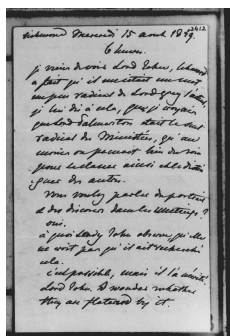 2412
Richmond Mercredi 15 aout 18
6 heures.
je viens de voir Lord John, la
a fait qu'il mettait un mot
un peu radical de Lord Grey
je lui dis à cela, que je croyais
que Lord Palmerston était le plus
radical des Ministres, qu'au
moins on prenait bien du soin
pour le classer ainsi et le
guer des autres.
vous voulez parler du portrait
et des discours dans les meetings ?
oui.
à quoi Lady John observe qu'elle
ne voit pas qu'il ait recherché
cela.
c'est possible, mais il l'a
Lord John. I wonder whether
they are flattered by it.